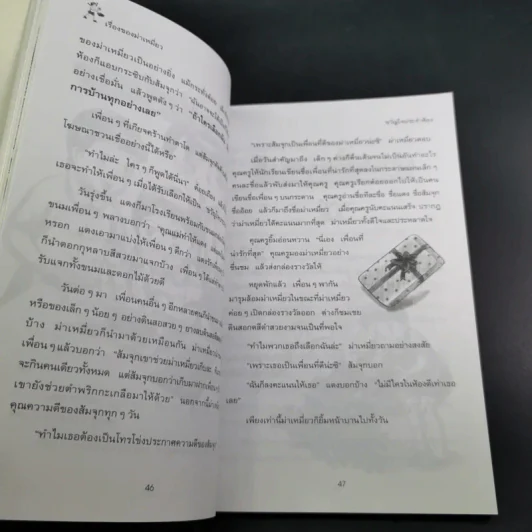 เรื่องของม่าเหมี่ยว
ของม่าเหมี่ยวเป็นอย่างยิ่ง
ห้องก็แอบกระซิบกับส้มจุกว่า
อย่างเชื่อมั่น แล้วพูดดังๆ ว่า
การบ้านทุกอย่างเลย"
เพื่อนๆ ที่เกียจคร้านทำตาโต
โฆษณาชวนเชื่ออย่างนี้ได้หรือ"
"ทำไมล่ะ ใครๆ ก็พูดได้นี่นา"
เธอจะทำให้เพื่อนๆ เมื่อได้รับเลือกให้เป็น
วันรุ่งขึ้น แตงก็มาโรงเรียนพร้อมกับ
ขนมเพื่อนๆ พลางบอกว่า
หรอก แตงเอามาแบ่งให้เพื่อนๆ ดีกว่า
ก็นำดอกกุหลาบสีสวยมาแจกบ้าง
รับแจกทั้งขนมและดอกไม้ด้วยดี
วันต่อๆ มา เพื่อนคนอื่นๆ อีกหลายคน
หรือของเล็กๆ น้อยๆ อย่างดินสอสวยๆ
บ้าง ม่าเหมี่ยวก็นำมาด้วยเหมือนกัน
เพื่อนๆ แล้วบอกว่า "ส้มจุกเขาช่วยม่าเหมี่ยว
จะกินคนเดียวทั้งหมด แต่ส้มจุกบอกว่า
เขายังช่วยตำพริกกะเกลือมาให้ด้วย"
คุณความดีของส้มจุกทุกๆ วัน
"ทำไมเธอต้องเป็นโทรโข่งประกาศความดีของส้มจุก
46
"เพราะส้มจุกเป็นเพื่อนที่ดีของม่าเหมี่ยวน่ะซิ" ม่าเหมี่ยวตอบ
เมื่อวันสำคัญมาถึง เด็กๆ ต่างก็ตื่นเต้นจนไม่เป็นอันทำอะไร
คุณครูให้นักเรียนเขียนชื่อเพื่อนที่น่ารักที่สุดลงในกระดาษแผ่นเล็กๆ
คนละชื่อแล้วพับส่งมาให้คุณครู คุณครูเรียกต้อยออกไปให้เป็นคน
เขียนชื่อเพื่อนๆ บนกระดาน คุณครูอ่านชื่อทีละชื่อ ชื่อแตง ชื่อส้มจุก
ชื่อต้อย แล้วก็มาถึงชื่อม่าเหมี่ยว เมื่อคุณครูนับคะแนนเสร็จ ปรากฏ
ว่าม่าเหมี่ยวได้คะแนนมากที่สุด ม่าเหมี่ยวทั้งดีใจและประหลาดใจ
คุณครูยิ้มอ่อนหวาน "นี่เอง เพื่อนที่
น่ารักที่สุด" คุณครูมองม่าเหมี่ยวอย่าง
ชื่นชม แล้วส่งกล่องรางวัลให้
หยุดพักแล้ว เพื่อนๆ พากัน
มารุมล้อมม่าเหมี่ยวในขณะที่ม่าเหมี่ยว
ค่อยๆ เปิดกล่องรางวัลออก ต่างก็ชมเชย
ดินสอกดสีดำสวยงามจนเป็นที่พอใจ
"ทำไมพวกเธอถึงเลือกฉันล่ะ" ม่าเหมี่ยวถามอย่างสงสัย
"เพราะเธอเป็นเพื่อนที่ดีน่ะซิ" ส้มจุกบอก
"ฉันก็ลงคะแนนให้เธอ" แตงบอกบ้าง "ไม่มีใครในห้องดีเท่าเธอ
เลย"
เพียงเท่านี้ม่าเหมี่ยวก็ยิ้มหน้าบานไปทั้งวัน
47